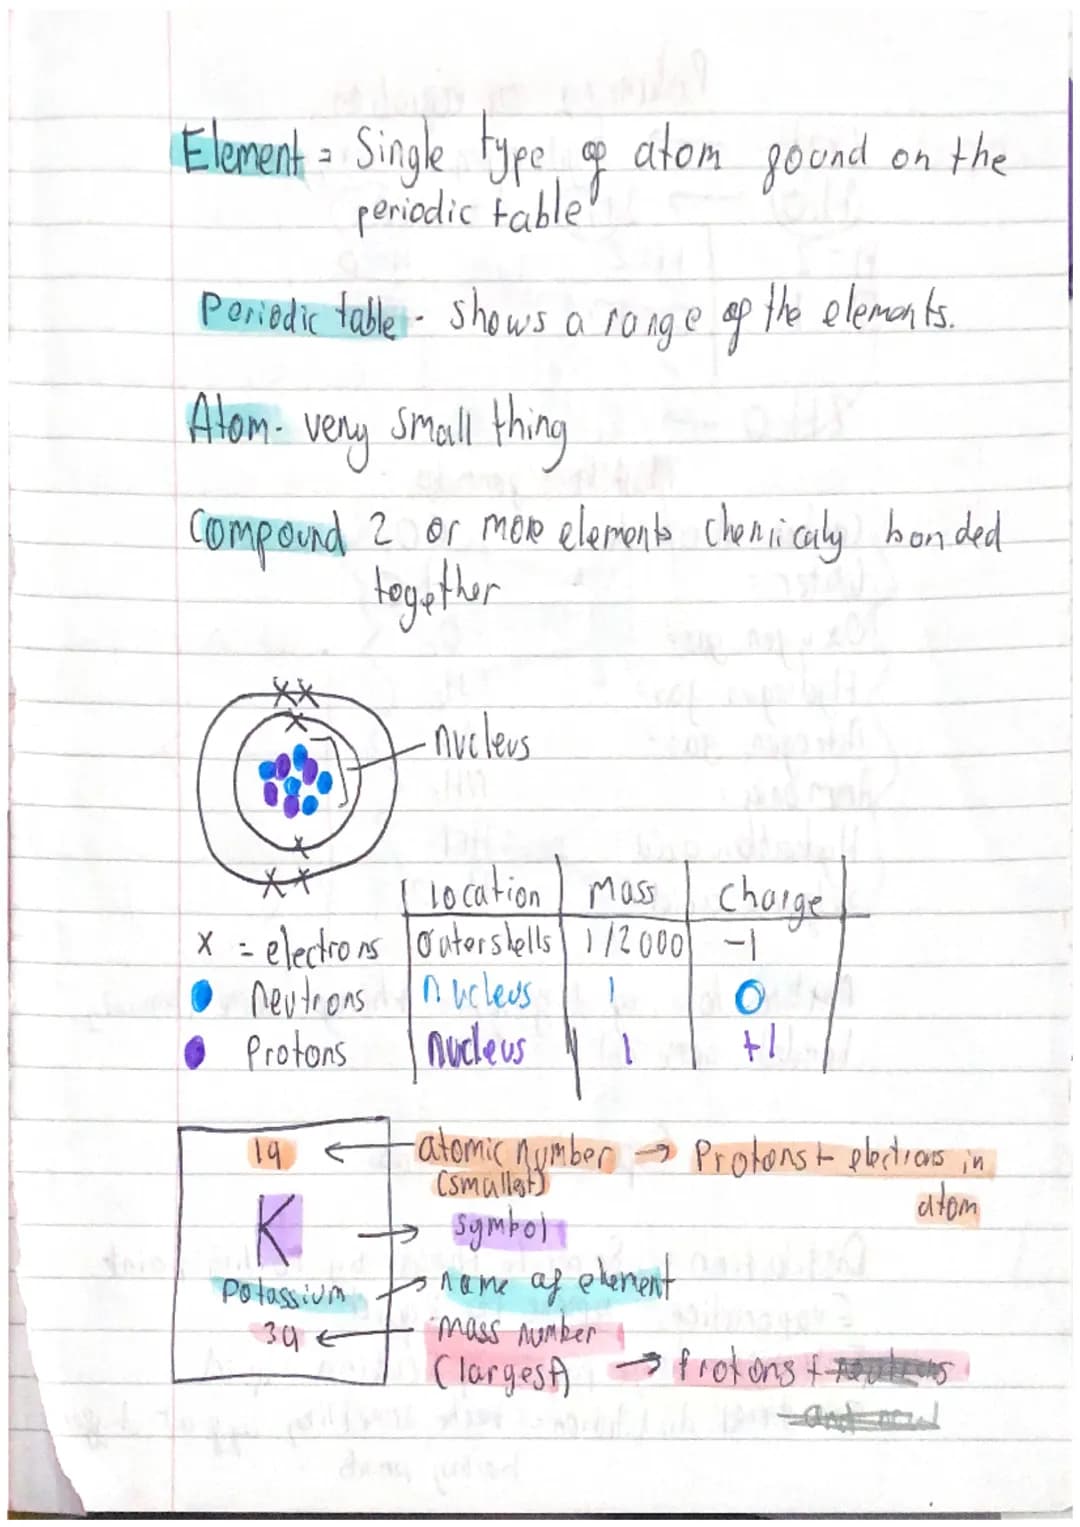 Element = Single type of atom gound on the
periodic table
Periodic table - shows a range of the elements.
Atom - very small thing
Compound 2 or more elements chemicaly bonded
together
nucleus
Location Mass Charge
x = electrons Outershells 1/2000 -1
Neutrons nucleus 1 0
Protons nucleus 1 +1
19 ← atomic number → Protons + electrons in
(smallest) atom
K → symbol
Potassium → name of element
39 ← mass number
(largest) → Protons + neutrons
and neu